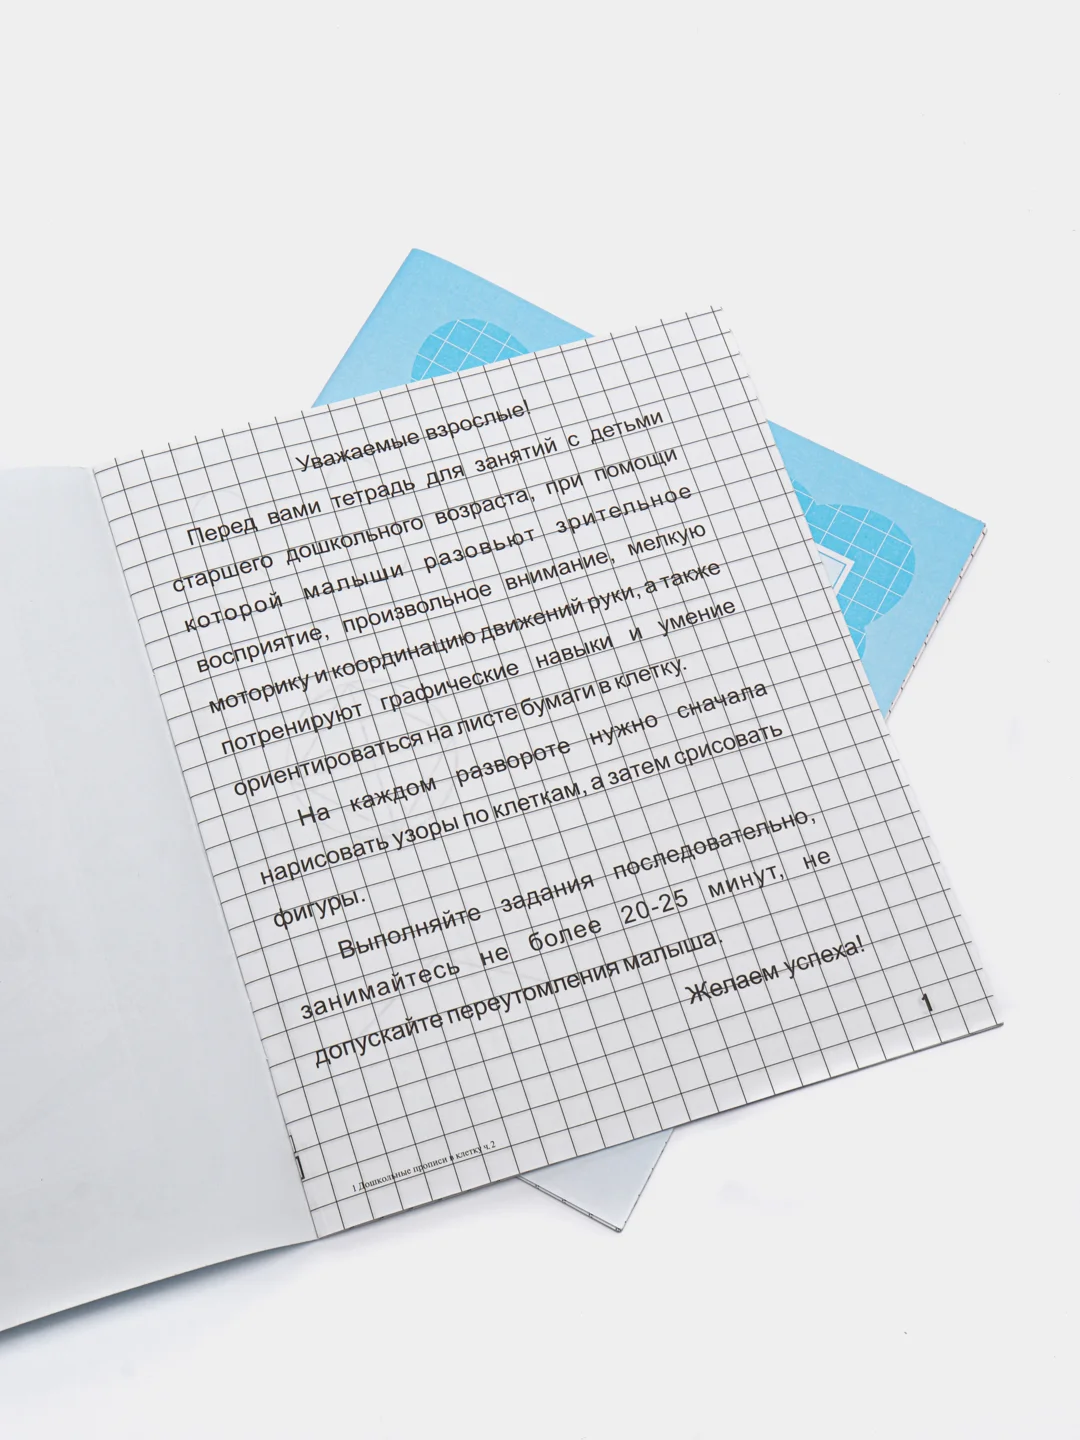 Уважаемые взрослые!
Перед вами тетрадь для занятий с детьми
старшего дошкольного возраста, при помощи
которой малыши разовьют зрительное
восприятие, произвольное внимание, мелкую
моторику и координацию движений руки, а также
потренируют графические навыки и умение
ориентироваться на листе бумаги в клетку.
На каждом развороте нужно сначала
нарисовать узоры по клеткам, а затем срисовать
фигуры.
Выполняйте задания последовательно,
занимайтесь не более 20-25 минут, не
допускайте переутомления малыша.
Желаем успеха!
1
1 Дошкольные прописи в клетку ч.2